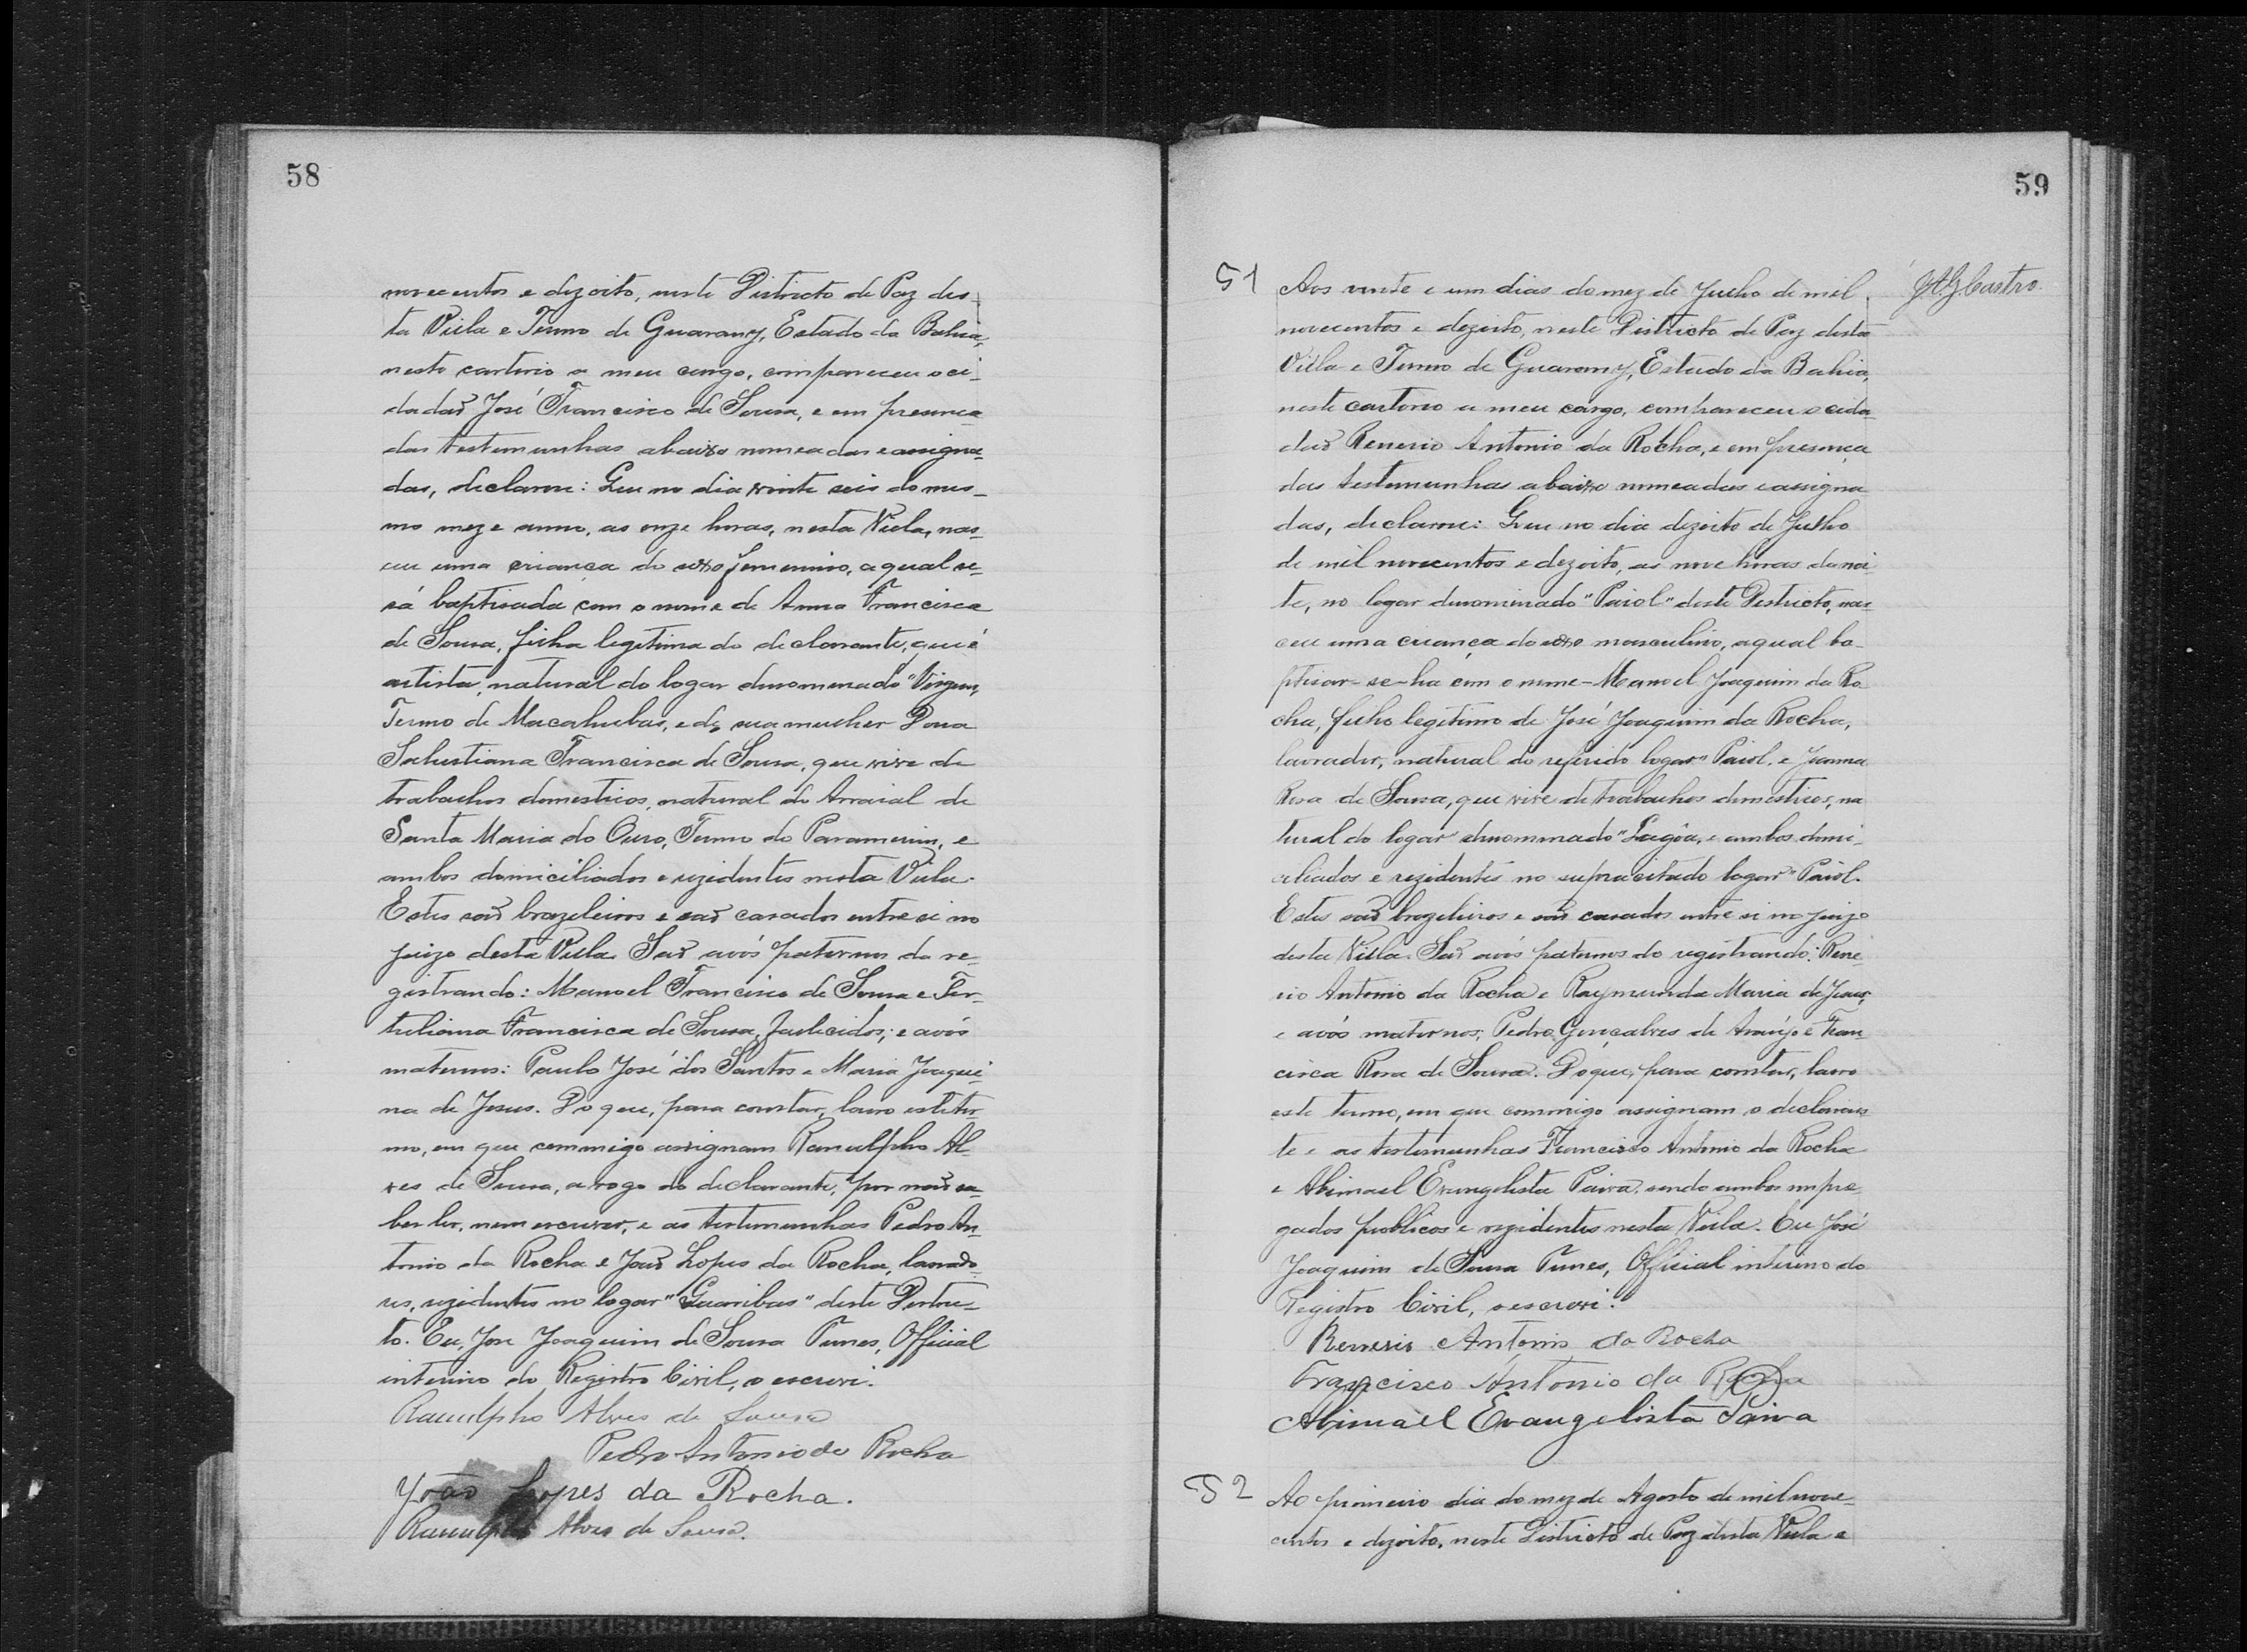 58
novecentos e dezoito, neste Districto de Paz des-
ta Villa e Termo de Guarany, Estado da Bahia,
neste cartorio a meu cargo, compareceu o ci-
dadaõ José Francisco de Sousa, e em presença
das testemunhas abaixo nomeadas e assigna-
das, declarou: Que no dia vinte seis do mes-
mo mez e anno, as onze horas, nesta Villa, nas-
ceu uma criança do sexo femenino, a qual se-
rá baptisada com o nome de Anna Francisca
de Sousa, filha legitima do declarante, que é
artista, natural do logar denominado "Virgem,
Termo de Macahubas, e de sua mulher Dona
Salustiana Francisca de Sousa, que vive de
trabalhos domesticos, natural do Arraial de
Santa Maria do Ouro, Termo do Paramirim, e
ambos domiciliados e rezidentes nesta Villa.
Estes saõ brazileiros e saõ casados entre si no
juizo desta Villa. Saõ avós paternos da re-
gistrando: Manoel Francisco de Sousa e Ter-
tuliana Francisca de Sousa, fallecidos; e avós
maternos: Paulo José dos Santos e Maria Joaqui-
na de Jesus. Do que, para constar, lavro este ter-
mo, em que commigo assignam Ranulpho Al-
ves de Sousa, a rogo do declarante, por naõ sa-
ber ler, nem escrever, e as testemunhas Pedro An-
tonio da Rocha e Joaõ Lopes da Rocha, lavrado-
res, rezidentes no logar "Guaribas" deste Distric-
to. Eu, José Joaquim de Sousa Tunes, Official
interino do Registro Civil, o escrevi.
Ranulpho Alves de Sousa
Pedro Antonio da Rocha
João Lopes da Rocha.
Ranulpho Alves de Sousa.
59
51 Aos vinte e um dias do mez de Julho de mil J.A.G.Castro
novecentos e dezoito, neste Districto de Paz desta
Villa e Termo de Guarany, Estado da Bahia,
neste cartorio a meu cargo, compareceu o cida-
daõ Renerio Antonio da Rocha, e em presença
das testemunhas abaixo nomeadas e assigna
das, declarou: Que no dia dezoito de Julho
de mil novecentos e dezoito, as nove horas da noi-
te, no logar denominado "Paiol" deste Districto, nas-
ceu uma criança do sexo masculino, a qual ba-
ptisar-se-ha com o nome - Manoel Joaquim da Ro
cha, filho legitimo de José Joaquim da Rocha,
lavrador, natural do referido logar "Paiol, e Joanna
Rosa de Sousa, que vive de trabalhos domesticos, na
tural do logar denominado "Lagôa, e ambos domi-
ciliados e rezidentes no supracitado logar "Paiol.
Estes saõ brazileiros e saõ casados entre si no juizo
desta Villa. Saõ avós paternos do registrando: Rene-
rio Antonio da Rocha e Raymunda Maria de Jesus,
e avós maternos: Pedro Gonçalves de Araújo e Fran-
cisca Rosa de Sousa. Do que, para constar, lavro
este termo, em que commigo assignam o declaran
te e as testemunhas Francisco Antonio da Rocha
e Abimael Evangelista Paiva, sendo ambos empre-
gados publicos e rezidentes nesta Villa. Eu José
Joaquim de Sousa Tunes, Official interino do
Registro Civil, o escrevi.
Renerio Antonio da Rocha
Francisco Antonio da Rocha
Abimael Evangelista Paiva
52 Ao primeiro dia do mez de Agosto de mil nove-
centos e dezoito, neste Districto de Paz desta Villa e